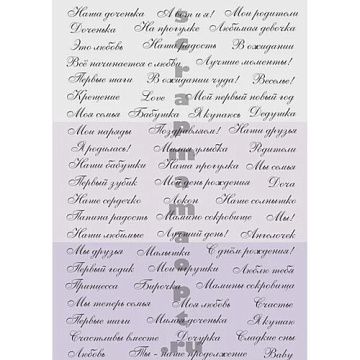 Наша доченька А вот и я! Мои родители
Доченька На прогулке Любимая девочка
Это любовь Наша радость В ожидании
Всё начинается с любви Лучшие моменты!
Первые шаги В ожидании чуда! Веселье!
Крещение Love Мой первый новый год
Моя семья Бабушка Я купаюсь Дедушка
Мои наряды Поздравляем! Наши друзья
Я родилась! Милая улыбка Родители
Наши бабушки Наша прогулка Мы семья
Первый зубик Мой день рождения Доча
Наше сердечко Локон Наше солнышко
Папина радость Мамино сокровище Мы!
Наши любимые Лучший день! Ангелочек
Мы друзья Малышка С днём рождения!
Первый годик Мои игрушки Люблю тебя
Принцесса Бирочка Мамины сокровища
Мы теперь семья Моя любовь Счастье
Первые шаги Милая доченька Я кушаю
Счастливы вместе Дочурка Сладкие сны
Любовь Ты - наше продолжение Baby
scrapmama